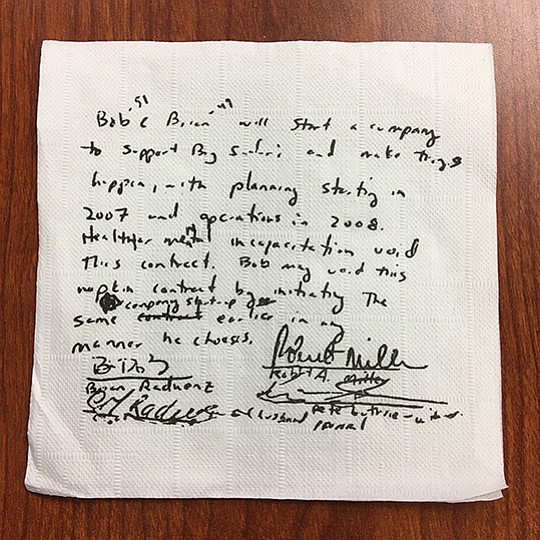 51 49
Bob & Brian will start a company
to support Big Safari and make things
happen, with planning starting in
2007 and operations in 2008.
Health or mental incapacitation void
this contract. Bob may void this
napkin contract by initiating the
company start-up
same contract earlier in any
manner he chooses.
Robert Miller
Robert A. Miller
Brian Raduenz
Pete
husband